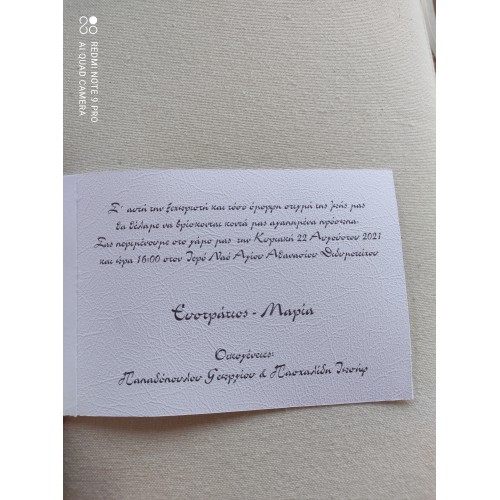 REDMI NOTE 9 PRO
AI QUAD CAMERA
Σ' αυτή την ξεχωριστή και τόσο όμορφη στιγμή της ζωής μας
θα θέλαμε να βρίσκονται κοντά μας αγαπημένα πρόσωπα.
Σας περιμένουμε στο γάμο μας την Κυριακή 22 Αυγούστου 2021
και ώρα 16:00 στον Ιερό Ναό Αγίου Αθανασίου Διδυμοτείχου
Ευστράτιος - Μαρία
Οικογένειες:
Παπαδόπουλου Γεωργίου & Πασχαλίδη